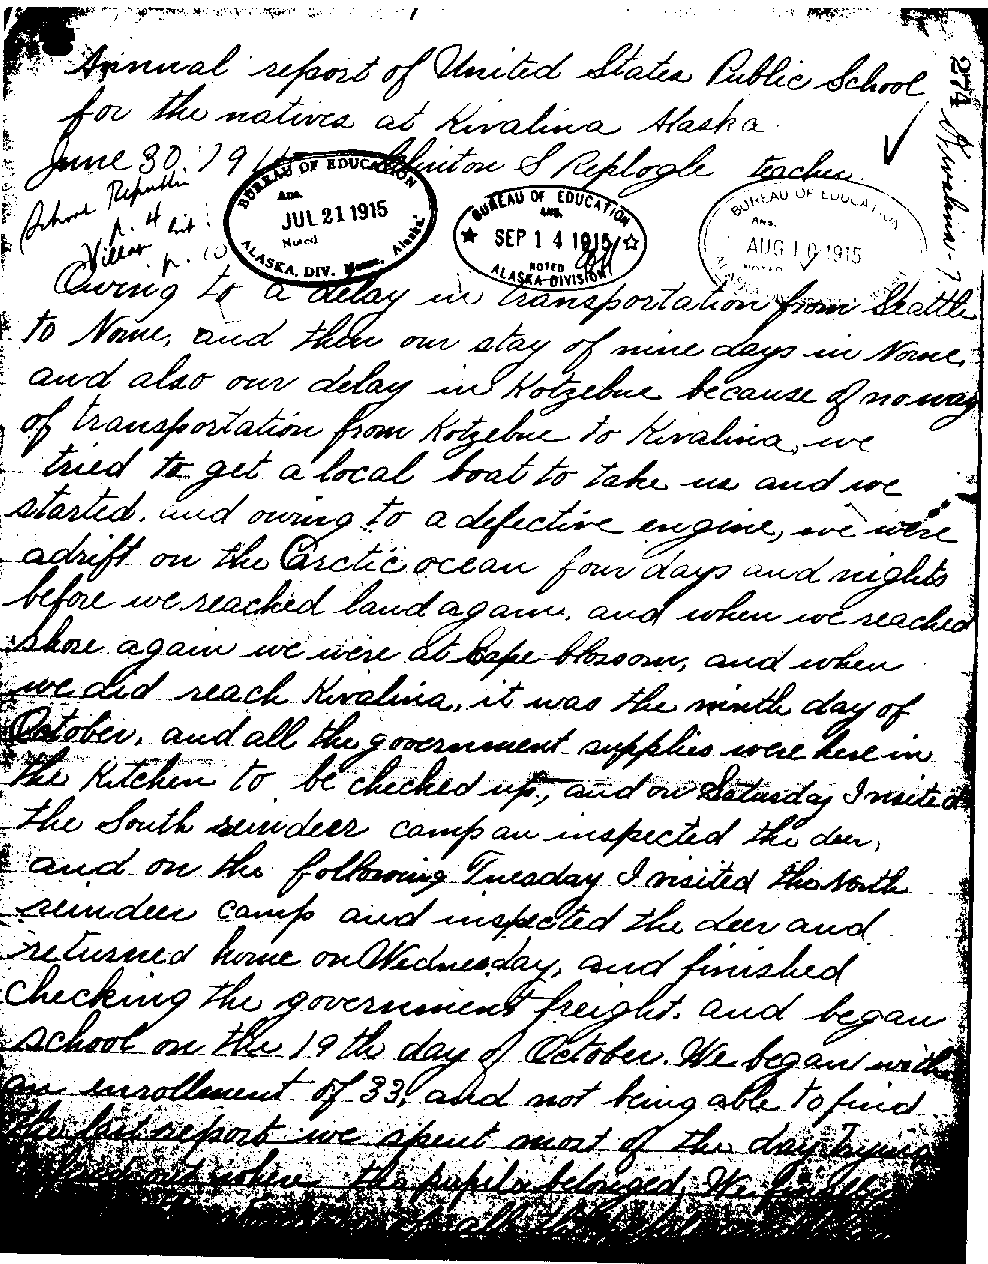 Annual report of United States Public School
for the natives at Kivalina Alaska.
June 30. 191 Clinton S Replogle teacher.
274 Kivalina-7
School Republic
p. 4
Village
p. 10
BUREAU OF EDUCATION
Ans.
JUL 21 1915
Noted
ALASKA. DIV. Nome, Alaska.
BUREAU OF EDUCATION
ANS.
SEP 14 1915
NOTED
ALASKA DIVISION
BUREAU OF EDUCATION
ANS.
AUG 10 1915
NOTED
Owing to a delay in transportation from Seattle
to Nome, and then our stay of nine days in Nome,
and also our delay in Kotzebue because of no way
of transportation from Kotzebue to Kivalina, we
tried to get a local boat to take us and we
started, and owing to a defective engine, we were
adrift on the Arctic ocean four days and nights
before we reached land again, and when we reached
shore again we were at Cape blossom, and when
we did reach Kivalina, it was the ninth day of
October, and all the government supplies were here in
the Kitchen to be checked up, and on Saturday I visited
the South reindeer camp an inspected the deer,
and on the following Tuesday I visited the North
reindeer camp and inspected the deer and
returned home on Wednesday, and finished
checking the government freight. and began
school on the 19th day of October. We began with
an enrollment of 33, and not being able to find
the last report we spent most of the day trying
to find out where the pupils belonged. We finally